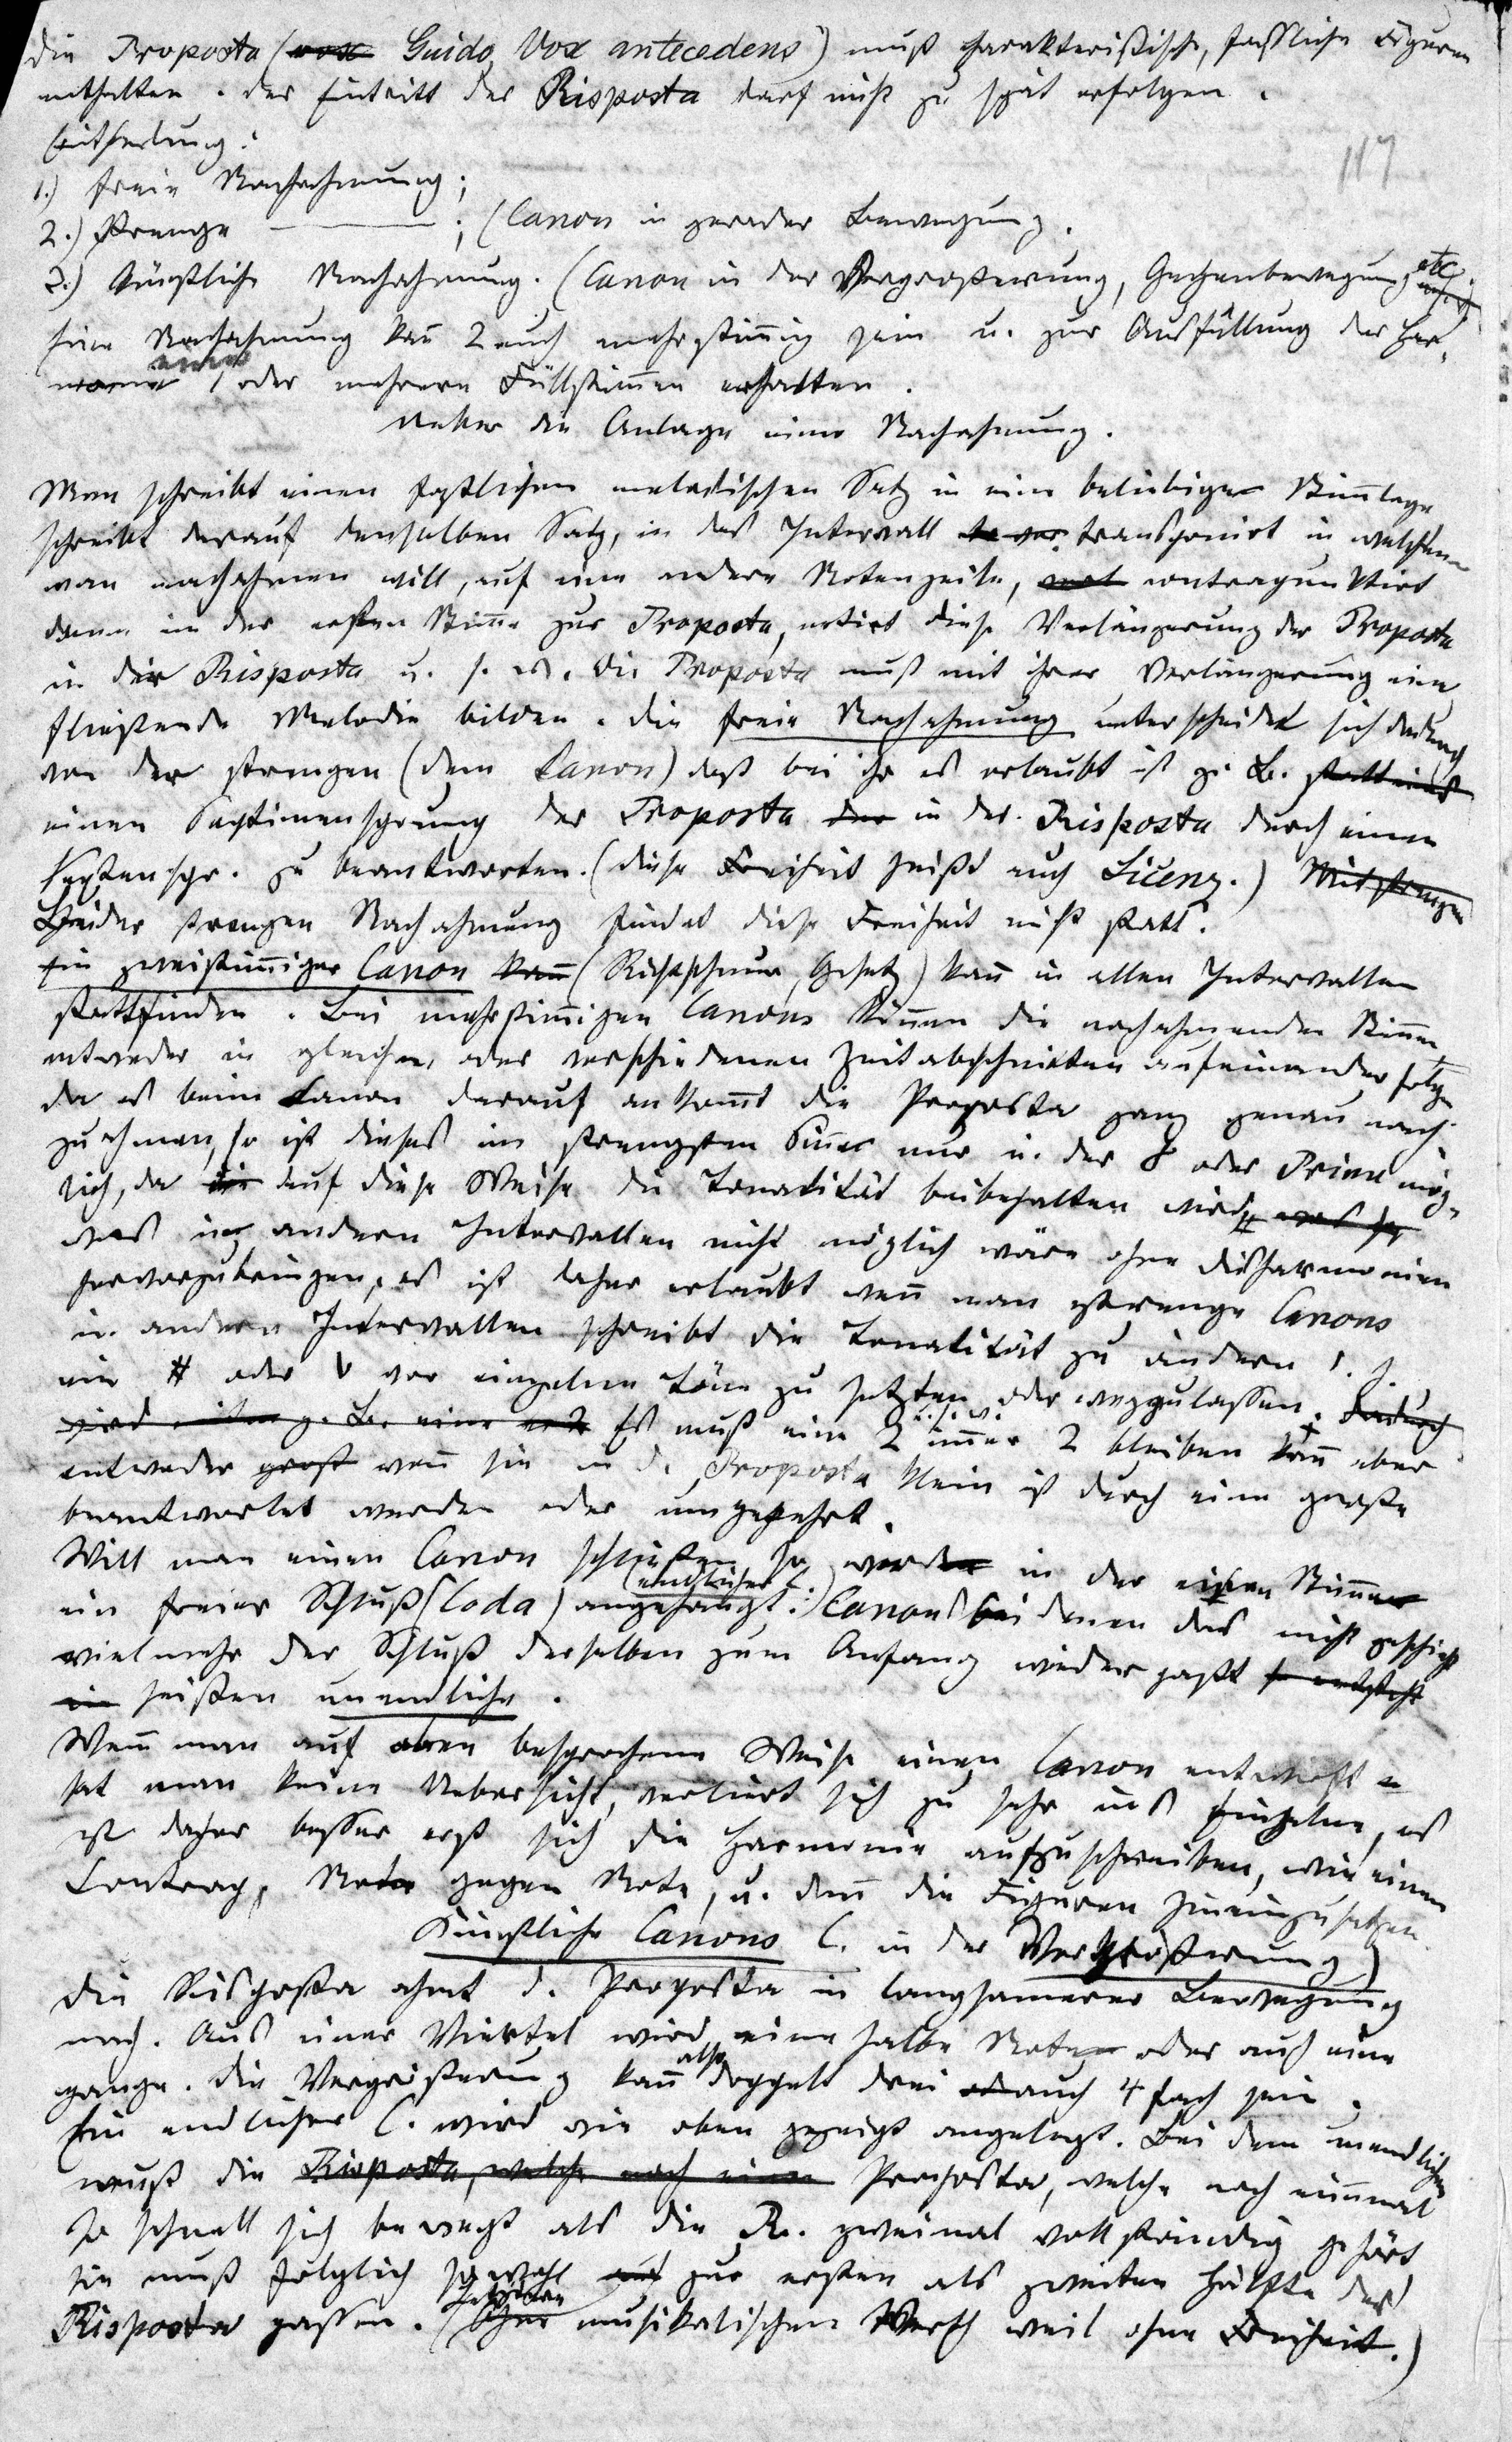 Die Proposta (vox Guido, Vox antecedens) muß charakteristische, faßliche Figuren
enthalten. Der Eintritt der Risposta darf nicht zu spät erfolgen.
Eintheilung:
117
1.) freie Nachahmung;
2.) strenge ———; (Canon in gerader Bewegung.
3.) künstliche Nachahmung. (Canon in der Vergrößerung, Gegenbewegung etc.
Eine Nachahmung kann auch mehrstimmig sein u. zur Ausfüllung der Har-
monie 1 oder mehrere Füllstimmen erhalten.
Ueber die Anlage einer Nachahmung.
Man schreibt einen faßlichen melodischen Satz in eine beliebige Stimmlage
schreibt darauf denselben Satz, in das Intervall transponirt in welchem
man nachahmen will, auf eine andere Notenzeile, contrapunktirt
dann in der ersten Stimme zur Proposta, notirt diese Verlängerung der Proposta
in der Risposta u. s. w. Die Proposta muß mit ihrer Verlängerung eine
fließende Melodie bilden. Die freie Nachahmung unterscheidet sich dadurch
von der strengen (dem Canon) daß bei ihr es erlaubt ist z. B. statt eines
einen Septimensprung der Proposta in der Risposta durch einen
Sextenspr. zu beantworten. (Diese Freiheit heißt auch Licenz.) Mit strengen
Bei der strengen Nachahmung findet diese Freiheit nicht statt.
Ein zweistimmiger Canon kann (Richtschnur, Gesetz) kann in allen Intervallen
stattfinden. Bei mehrstimmigen Canons können die nachahmenden Stimmen
entweder in gleichen, oder verschiedenen Zeitabschnitten aufeinander folgen
da es beim Canon darauf ankommt die Proposta ganz genau nach-
zuahmen, so ist dieses im strengsten Sinne nur in der 8 oder Prime mög-
lich, da auf diese Weise die Tonalität beibehalten wird, was
was in andern Intervallen nicht möglich wäre ohne Disharmonien
hervorzubringen, es ist daher erlaubt wenn man strenge Canons
in andern Intervallen schreibt die Tonalität zu ändern d. h.
ein # oder b vor einzelne Töne zu setzten oder wegzulassen. Dadurch
wird z. B. eine Es muß eine 2 immer 2 bleiben u. s. w. kann aber
entweder groß wenn sie in d. Proposta klein ist durch eine große
beantwortet werden oder umgekehrt.
Will man einen Canon schließen so werden in der einen Stimme
ein freier Schluß (Coda) angehängt: (endlicher C.) Canons bei denen das nicht geschieht
vielmehr der Schluß derselben zum Anfang wieder paßt so entsteht
heißen unendliche.
Wenn man auf oben besprochene Weise einen Canon entwirft
hat man keine Uebersicht, verliert sich zu sehr ins Einzelne, es
ist daher besser erst sich die Harmonie aufzuschreiben, wie einen
Contrap. Note gegen Note, u. dann die Figuren hineinzusetzen.
Künstliche Canons C. in der Vergrößerung)
Die Risposta ahmt d. Proposta in langsamerer Bewegung
nach. Aus einer Viertel wird eine halbe Note oder auch eine
ganze. Die Vergrößerung kann also doppelt drei auch 4 fach sein.
Ein endlicher C. wird wie oben gezeigt angelegt. Bei dem unendlichen
muß die Risposta, welche noch einm Proposta, welche noch einmal
so schnell sich bewegt als die R. zweimal vollständig gehört
sie muß folglich sowohl zur ersten als zweiten Hälfte der
Risposta passen. (Ohne musikalischen Werth weil ohne Freiheit.)